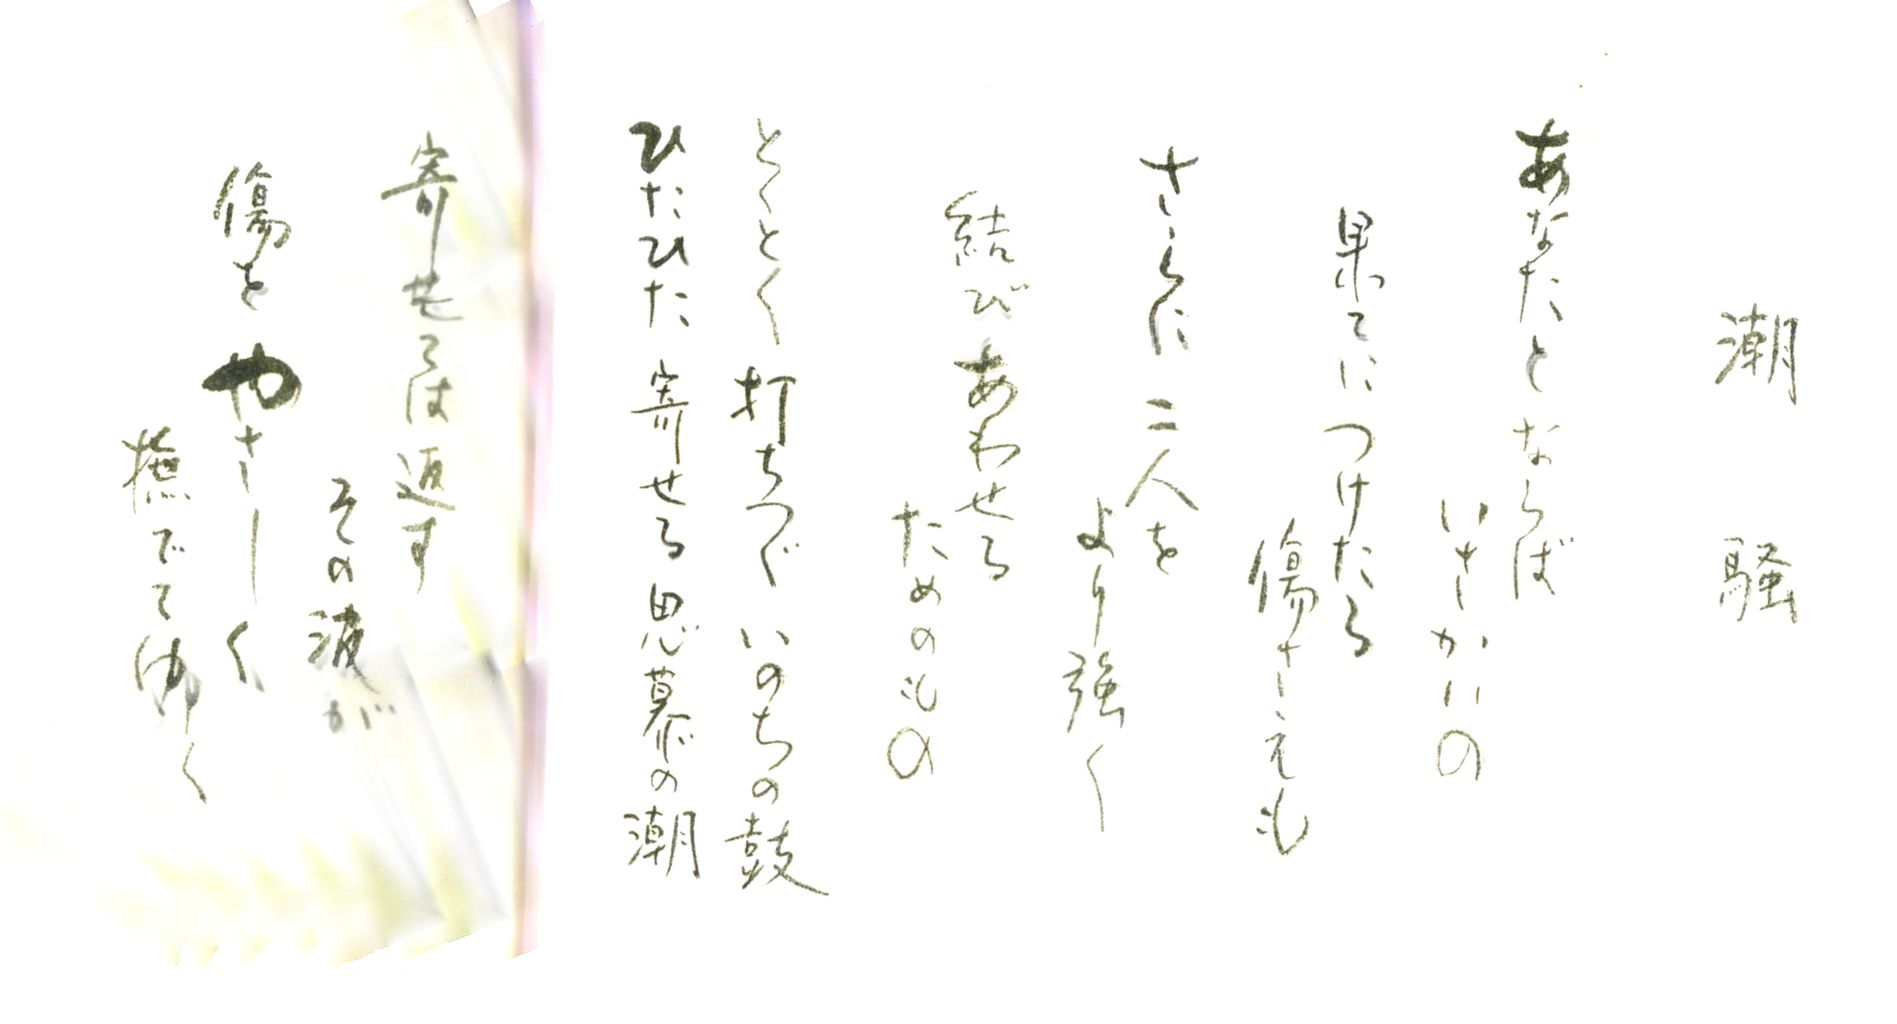 潮騒
あなたとならば
いさかいの
果てにつけたる
傷さえも
さらに二人を
より強く
結びあわせる
ためのもの
とくとく打ちつぐいのちの鼓
ひたひた寄せる思慕の潮
寄せては返す
その波が
傷をやさしく
撫でてゆく